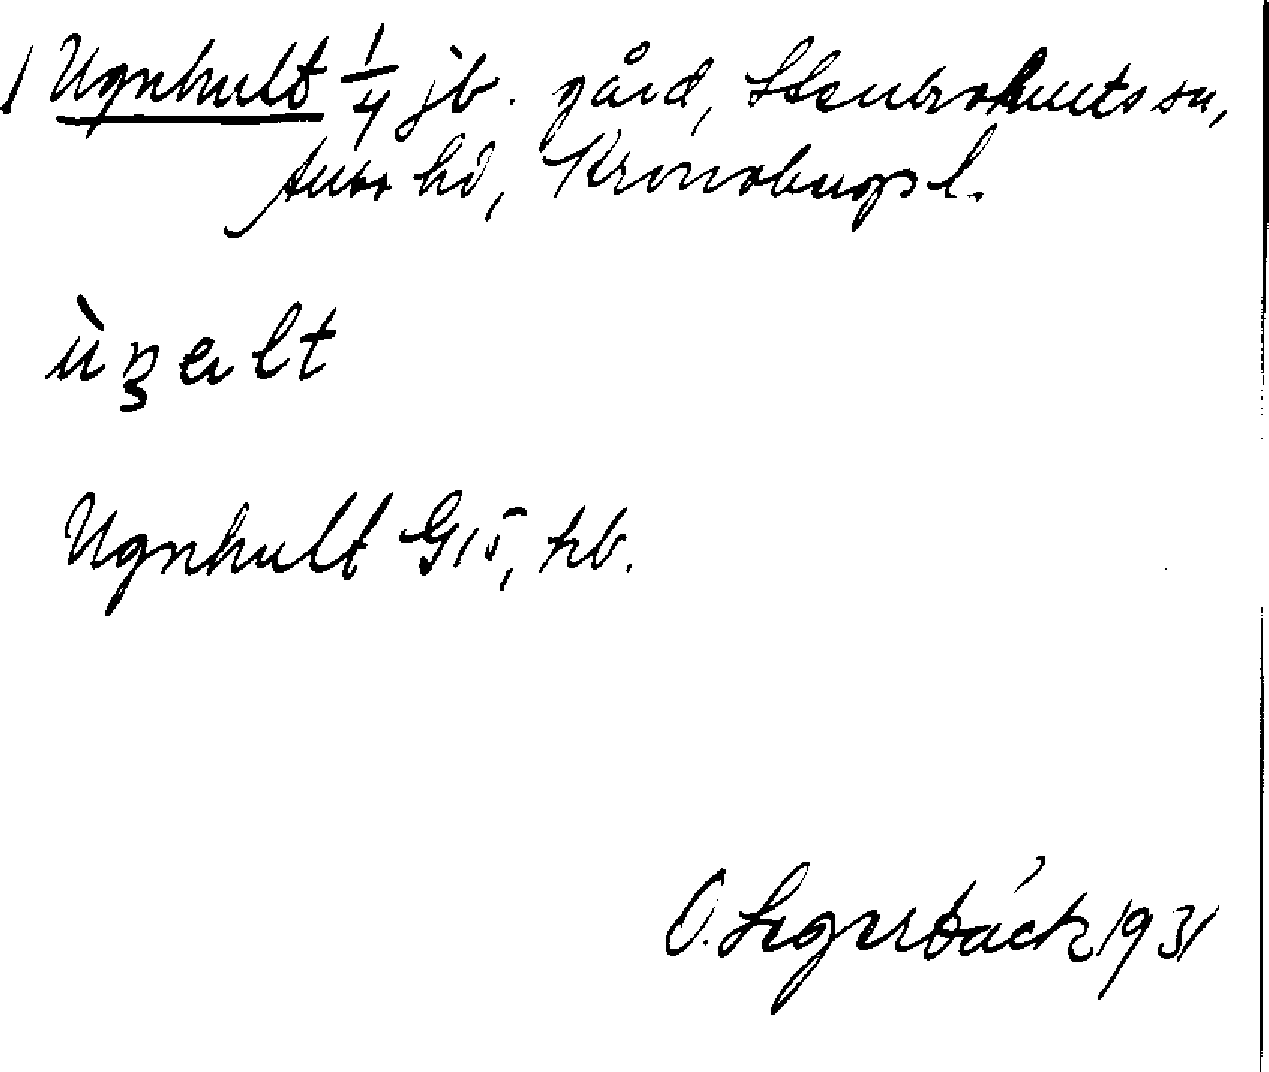 1 Ugnhult 1/4 jb. gård, Stenbrohults sn,
Allbo hd, Kronobergs l.
Ugnhult G15, kb.
O. Segerbäck 1931